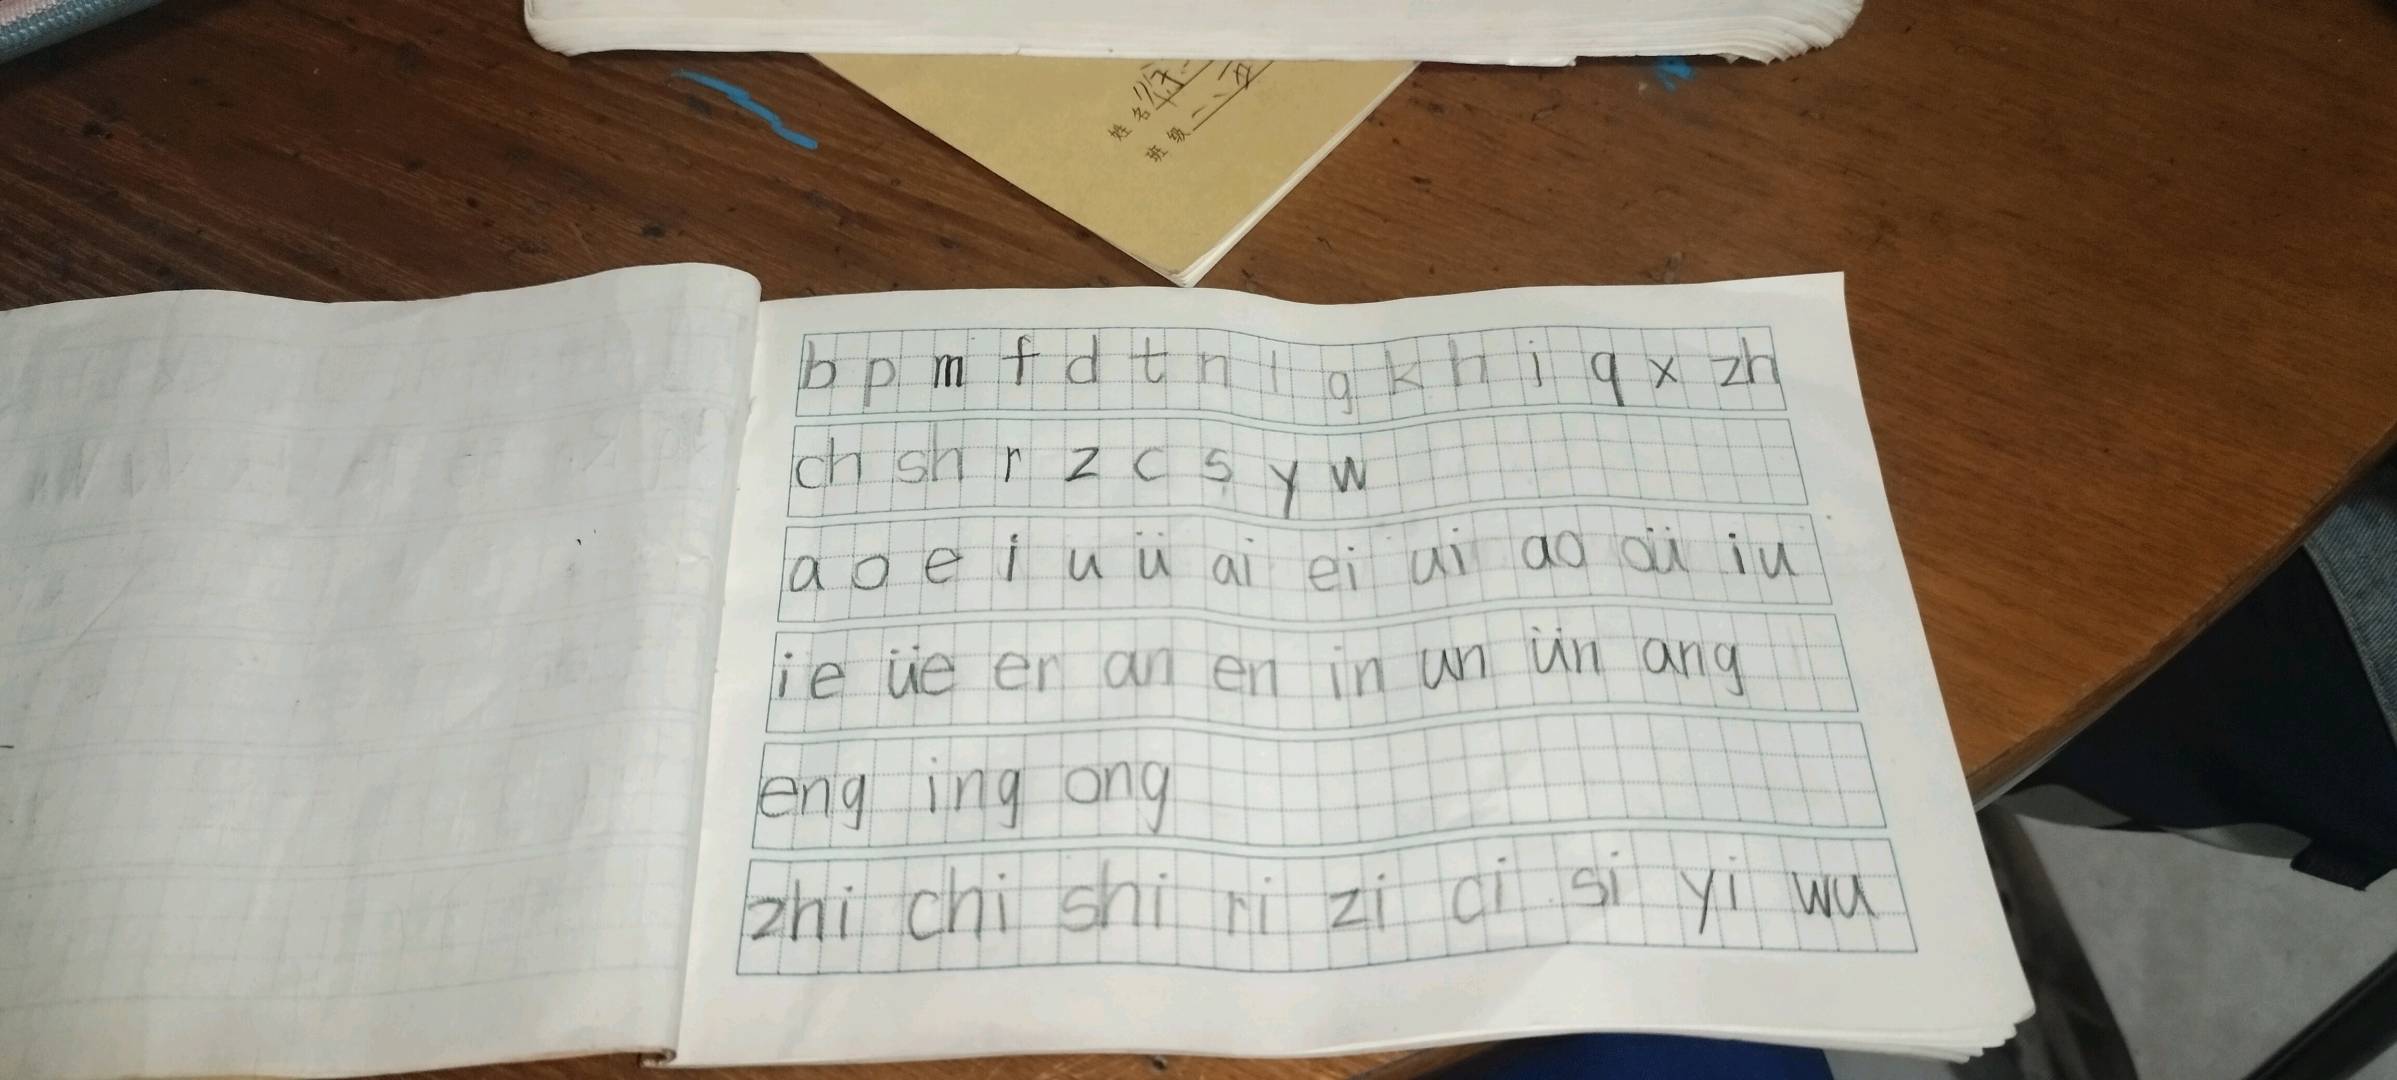 姓名
班级 二、二
b p m f d t n l g k h j q x zh
ch sh r z c s y w
a o e i u ü ai ei ui ao oü iu
ie üe er an en in un ün ang
eng ing ong
zhi chi shi ri zi ci si yi wu